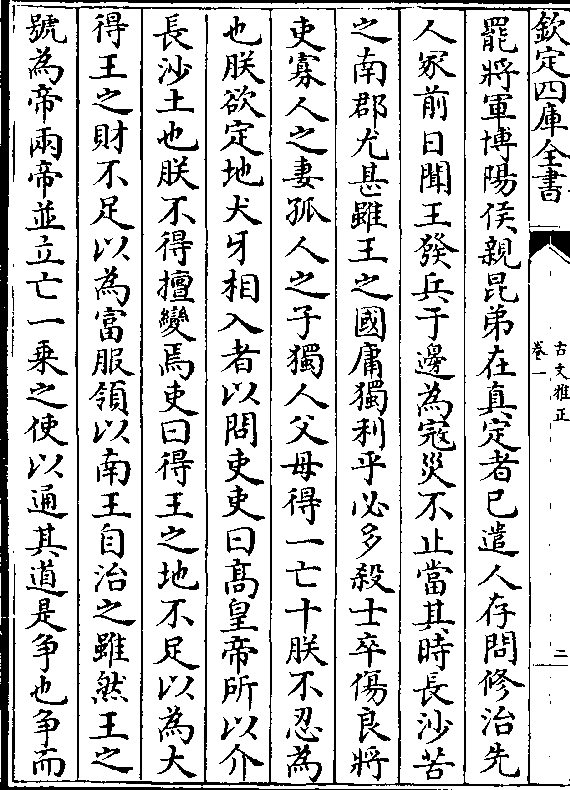 欽定四庫全書
古文雅正
卷一
二
罷將軍博陽侯親昆弟在真定者已遣人存問修治先
人冢前日聞王發兵于邊為寇災不止當其時長沙苦
之南郡尤甚雖王之國庸獨利乎必多殺士卒傷良將
吏寡人之妻孤人之子獨人父母得一亡十朕不忍為
也朕欲定地犬牙相入者以問吏吏曰髙皇帝所以介
長沙土也朕不得擅變焉吏曰得王之地不足以為大
得王之財不足以為富服領以南王自治之雖然王之
號為帝兩帝並立亡一乗之使以通其道是争也争而